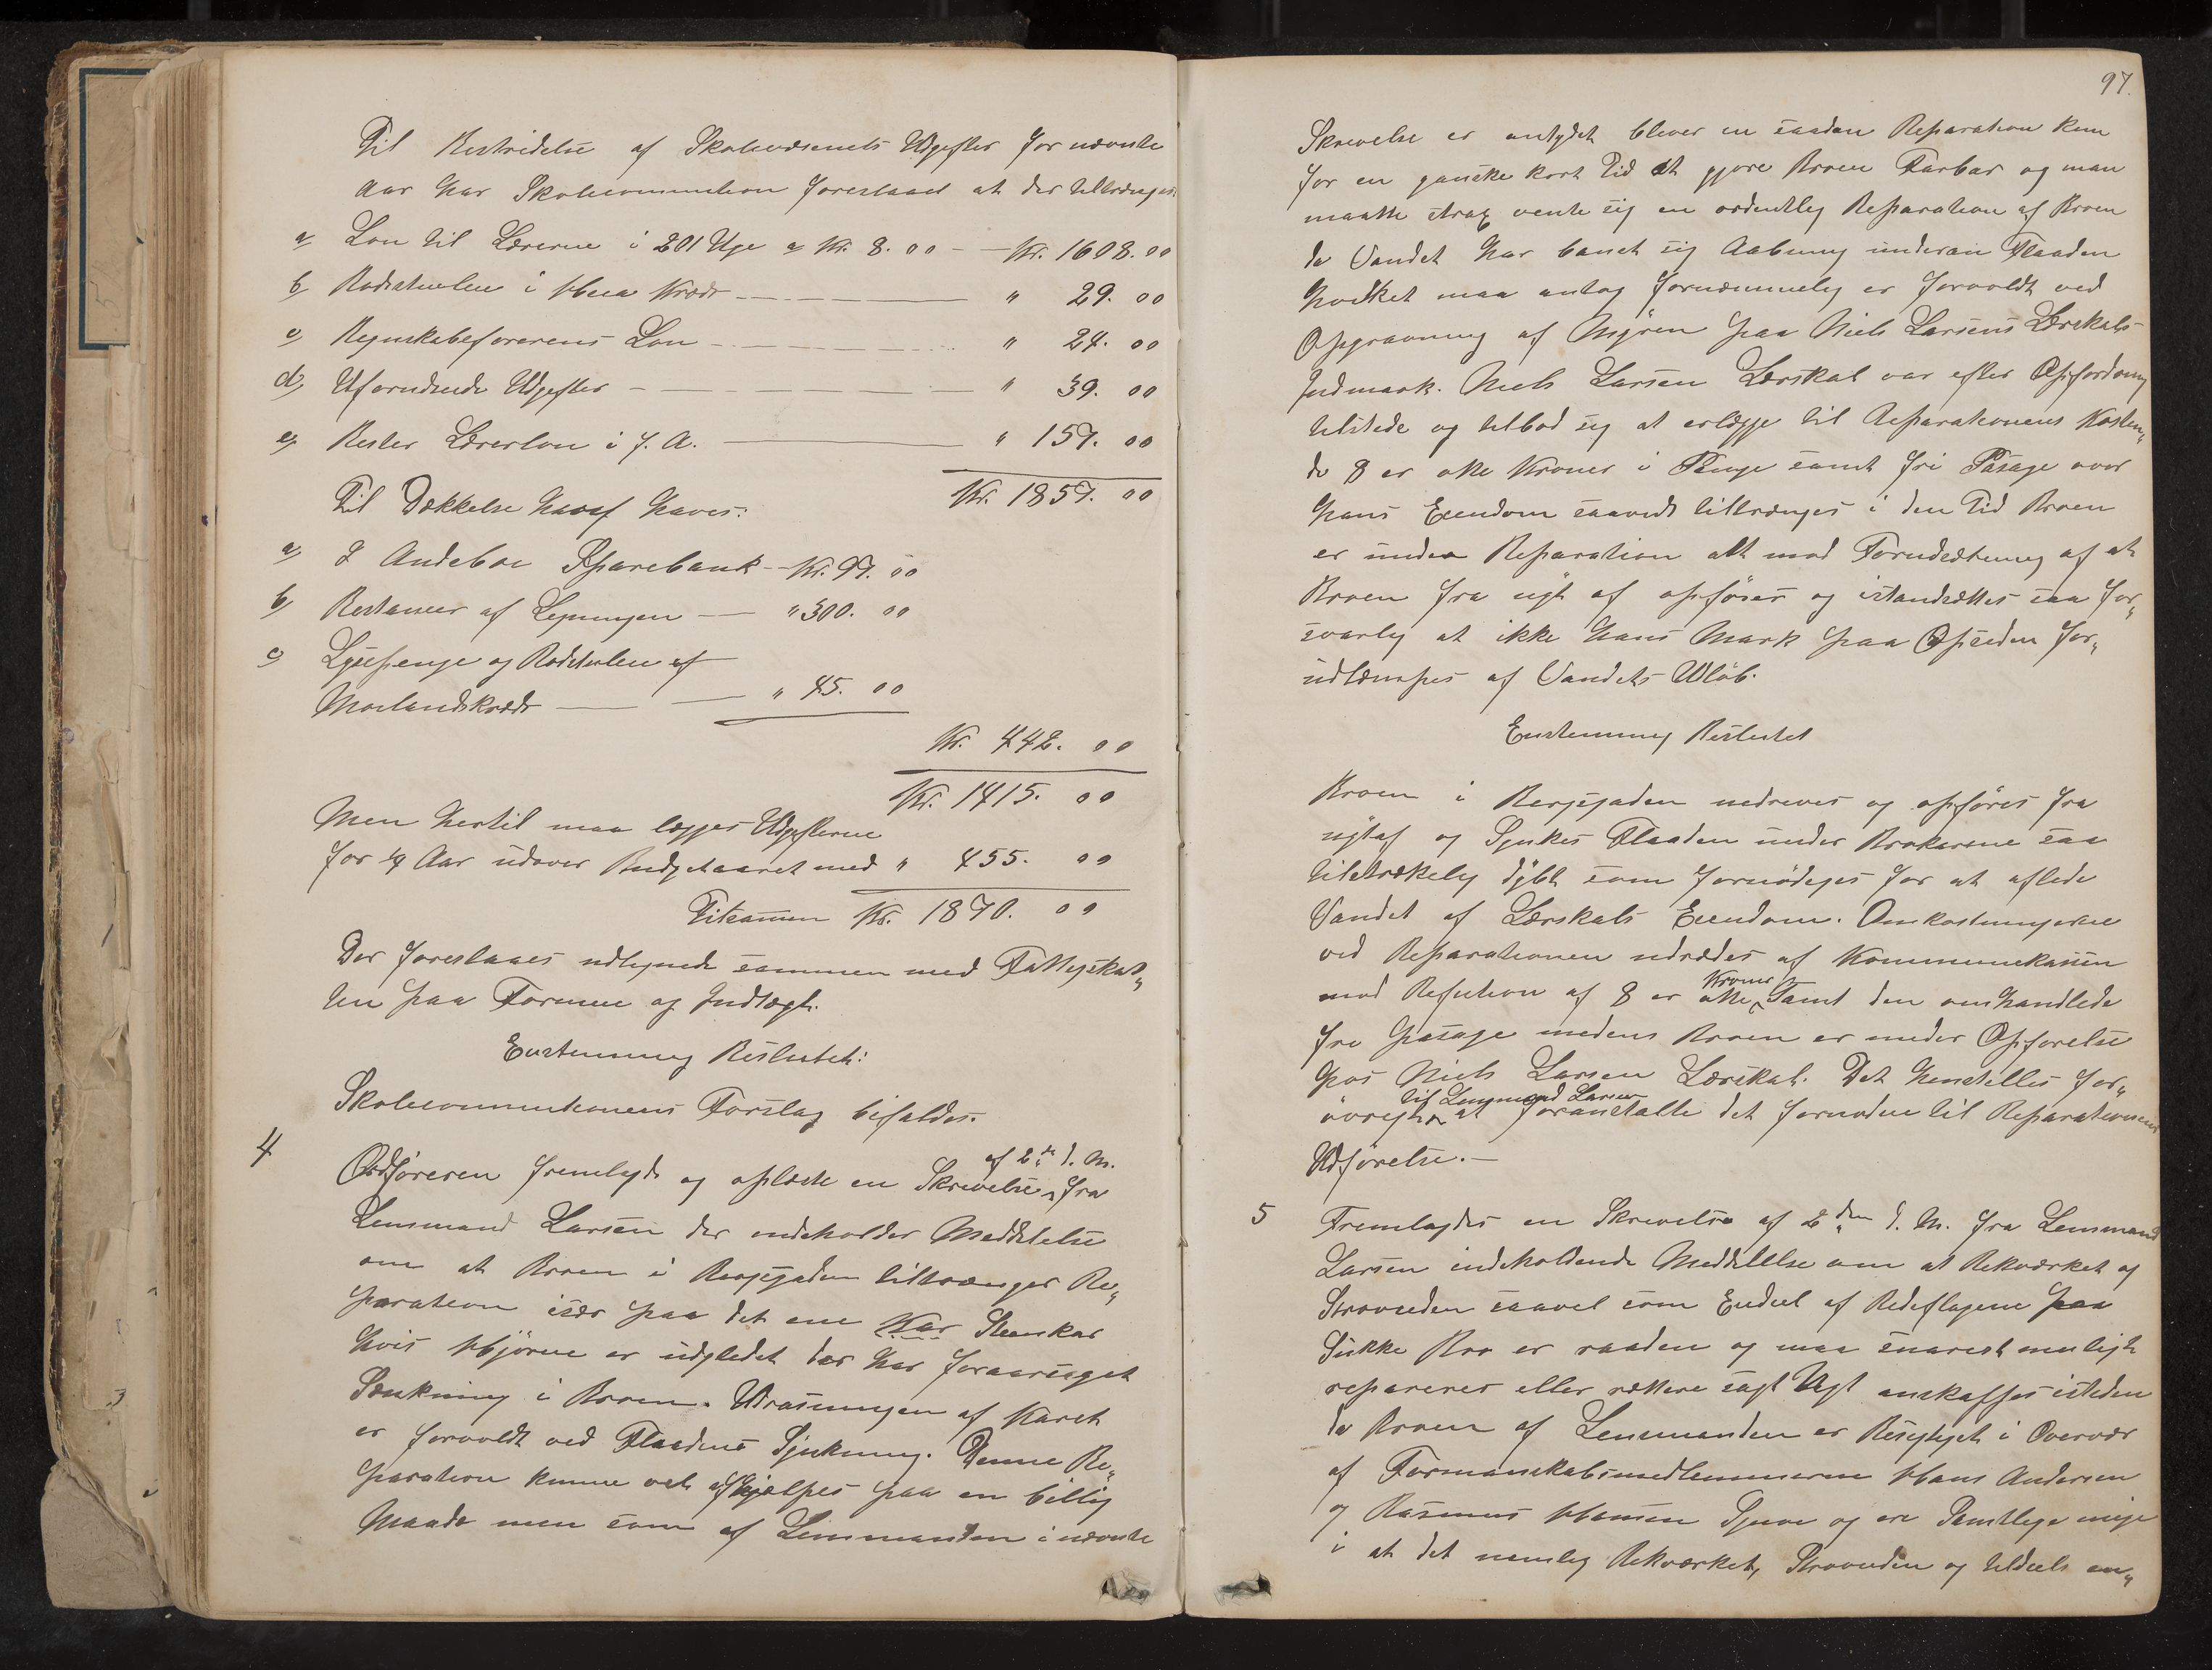 Til Bestridelse af Skolevæsenets Udgifter for nævnte
Aar har Skolecommissionen foreslaaet at der tiltrænges:
a, Løn til Lærerne i 201 Uge a Kr. 8. 00 — Kr. 1608. 00
b, Rodestuelen i Kræds — " 29. 00
c, Regnskabsførerens Løn — " 24. 00
d, Uforudseede Udgifter — " 39. 00
e, Rester Lærerløn i f. A. — " 157. 00
Kr. 1857. 00
Til Dækkelse heraf haves:
a, I Andebu Sparebank — Kr. 97. 00
b, Restancer af Ligningen — " 300. 00
c, Lysepenge og Rodestuelen af
Morlandskræds — " 45. 00
Kr. 442. 00
Kr. 1415. 00
Men hertil maa lægges Udgifterne
for ¼ Aar udover Budgetaaret med " 455. 00
Tilsammen Kr. 1870. 00
Der foreslaaes udlignede sammen med Fattigskat„
ten paa Formue og Indtægt.
Enstemmig Besluttet:
Skolecommissionens Forslag bifaldes.
4 Ordføreren fremlagde og oplæste en Skrivelse af 2den d. M. fra
Lensmand Larsen der indeholder Meddelelse
om at Broen i Bergsgaden tiltrænger Re„
paration især paa det ene Kar Steenkar
hvis Hjørne er udgledet der har foraarsaget
Sænkning i Broen. Udrasningen af Karet
er forvoldt ved Flaadens Sjunkning. Denne Re„
paration kunne vel afhjælpes paa en billig
Maade men som af Lensmanden i nævnte
97.
Skrivelse er antydet bliver en saadan Reparation kun
for en ganske kort Tid at gjøre Broen Farbar og man
maatte strax vente sig en ordentlig Reparation af Broen
da Vandet har banet sig Aabning under Flaaden
hvilket maa antag fornemmelig er forvoldt ved
Opgravning af Myren paa Niels Larsens Lerskals
Indmark. Niels Larsen Lerskal var efter Opfordring
tilstede og tilbød sig at erlægge til Reparationens Kosten„
de 8 er otte Kroner i Penge samt fri Pasage over
hans Eiendom saavidt tiltrænges i den Tid Broen
er under Reparation alt mod Forudsætning af at
Broen fra nyt af opføres og istandsættes saa for„
svarlig at ikke hans Mark paa Opsiden for„
udlæmpes af Vandets Udløb.
Enstemmig Besluttet
Broen i Bergsgaden nedrives og opføres fra
nytaf og Synkes Flaaden under Brokarene saa
tilstrækelig dybt som fornødiges for at aflede
Vandet af Lerskals Eiendom. Omkostningerne
ved Reparationen udrædes af Kommunekassen
mod Refusion af 8 er otte Kroner samt den omhandlede
fri pasage medens Broen er under Opførelse
hos Niels Larsen Lerskal. Det henstilles for„
øvrigt til Lensmand Larsen at foranstalte det fornødne til Reparationens
Udførelse. —
5 Fremlagdes en Skrivelse af 2den d. M. fra Lensmand
Larsen indeholdende Meddelelse om at Rekværket og
Skrovsiden saavel som Endeel af Redeflagene paa
Sukke Bro er raaden og maa snarest muligt
repareres eller rettere sagt Nyt anskaffes isteden
da Broen af Lensmanden er Besigtiget i Overvær
af Formanskabsmedlemmerne Hans Andersen
og Rasmus Hansen Gjuve og ere Samtlige enige
i at det nemlig Rekværket, Skrovsiden og tildeels en„